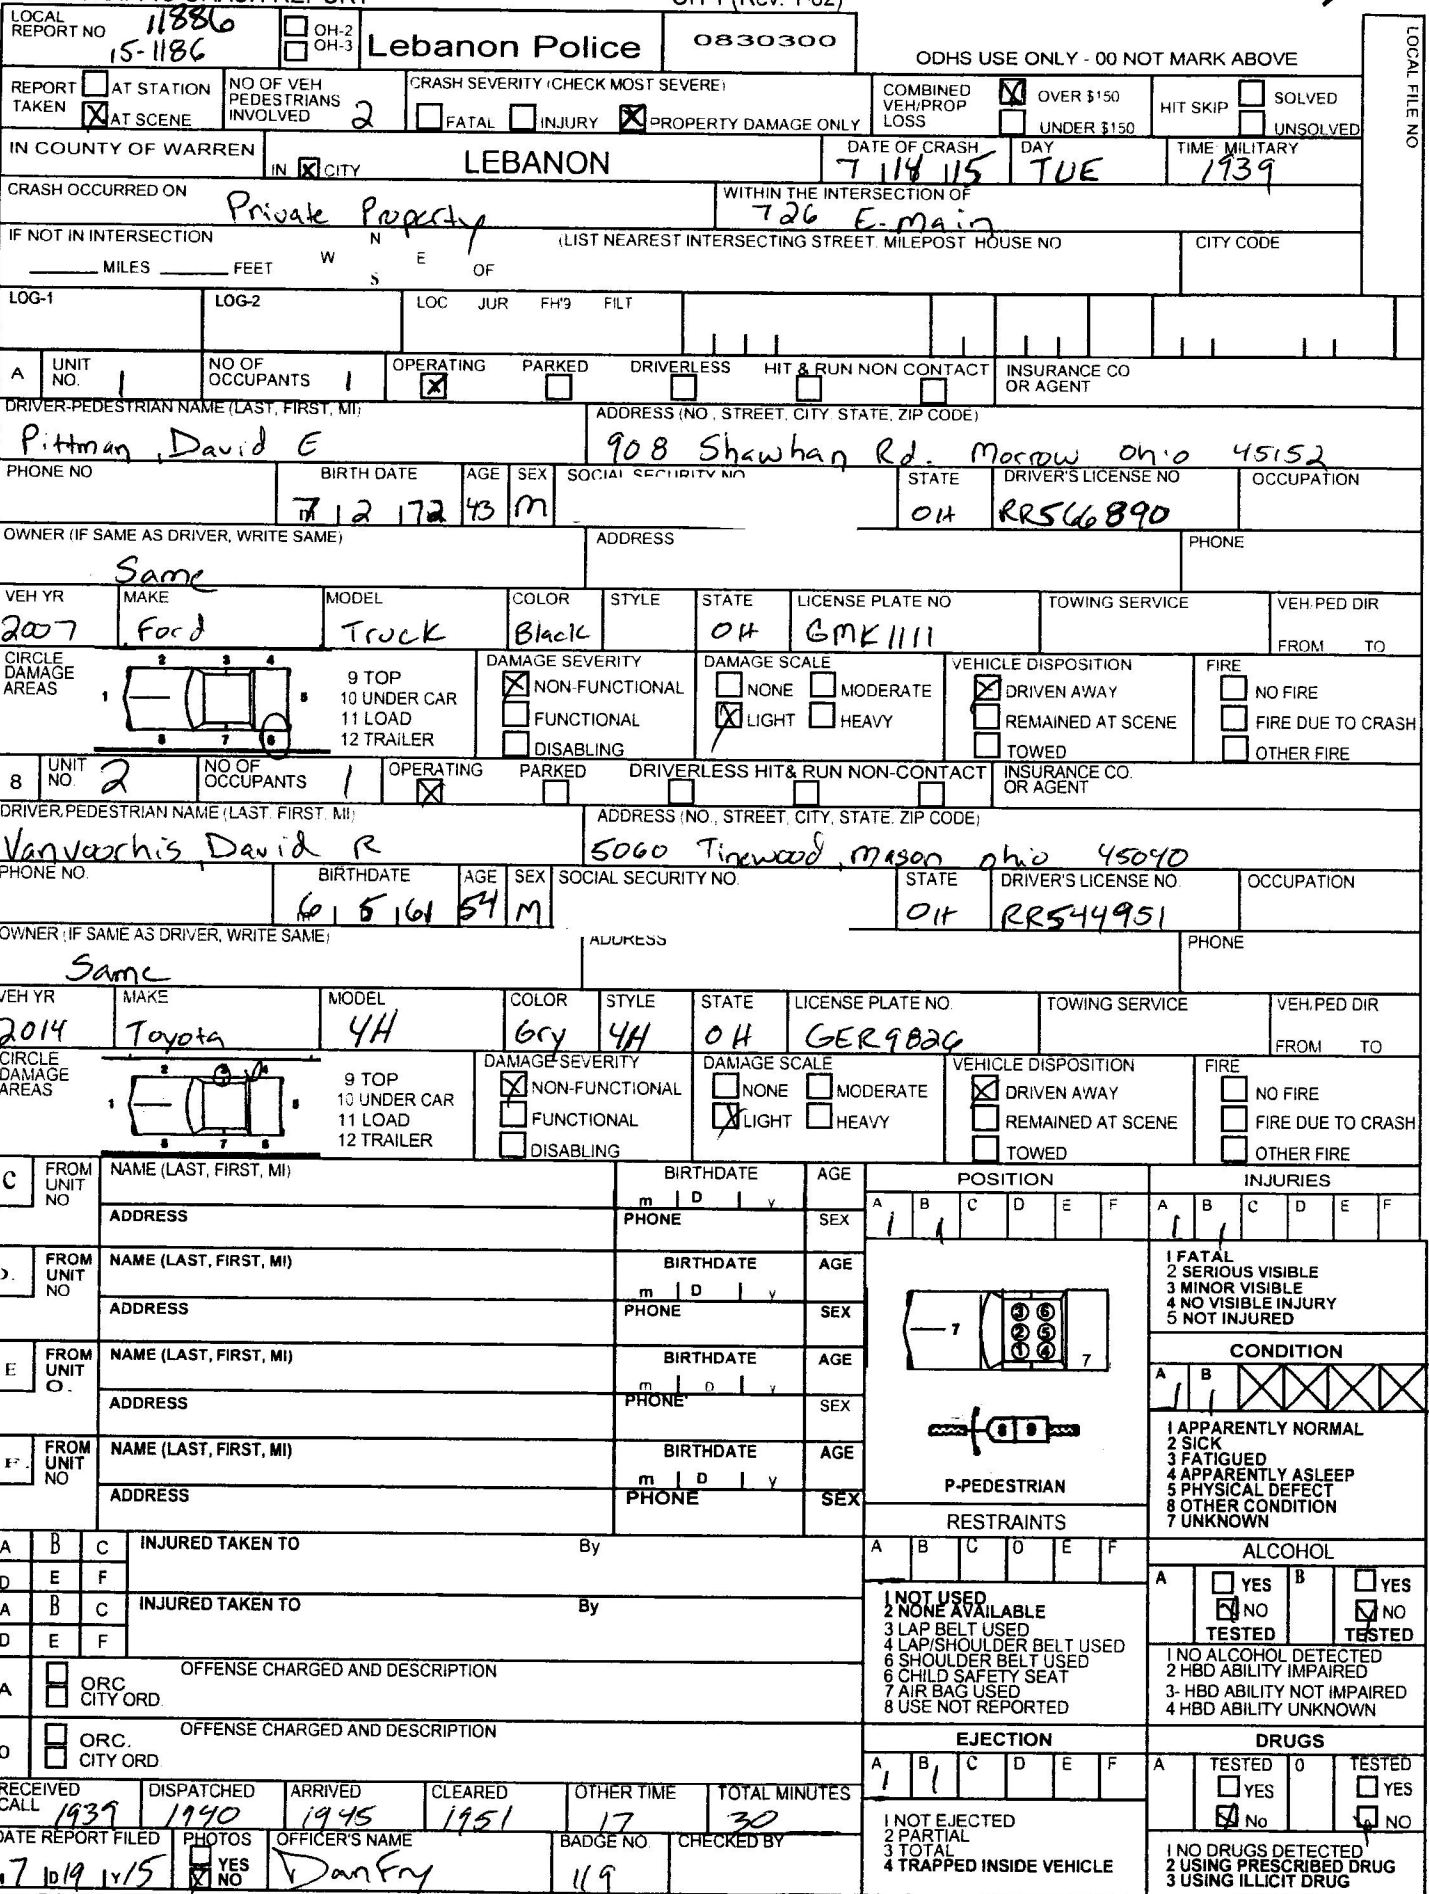 OH-1 (Rev. 1-82)
LOCAL REPORT NO 11886
15-1186
OH-2
OH-3
Lebanon Police
0830300
ODHS USE ONLY - 00 NOT MARK ABOVE
LOCAL FILE NO
REPORT TAKEN
AT STATION
X AT SCENE
NO OF VEH PEDESTRIANS INVOLVED 2
CRASH SEVERITY (CHECK MOST SEVERE)
FATAL INJURY X PROPERTY DAMAGE ONLY
COMBINED VEH/PROP LOSS
X OVER $150
UNDER $150
HIT SKIP
SOLVED
UNSOLVED
IN COUNTY OF WARREN
IN X CITY
LEBANON
DATE OF CRASH 7 14 15
DAY TUE
TIME MILITARY 1939
CRASH OCCURRED ON Private Property
WITHIN THE INTERSECTION OF 726 E. Main
IF NOT IN INTERSECTION
MILES FEET
N
W E
S
OF
(LIST NEAREST INTERSECTING STREET. MILEPOST HOUSE NO
CITY CODE
LOG-1 LOG-2 LOC JUR FH'9 FILT
A UNIT NO. 1
NO OF OCCUPANTS 1
OPERATING X PARKED DRIVERLESS HIT & RUN NON CONTACT
INSURANCE CO OR AGENT
DRIVER-PEDESTRIAN NAME (LAST, FIRST, MI)
Pittman, David E
ADDRESS (NO., STREET, CITY STATE, ZIP CODE)
908 Shawhan Rd. Morrow Ohio 45152
PHONE NO
BIRTH DATE 7 2 72
AGE 43
SEX M
SOCIAL SECURITY NO
STATE OH
DRIVER'S LICENSE NO RR566890
OCCUPATION
OWNER (IF SAME AS DRIVER, WRITE SAME) Same
ADDRESS
PHONE
VEH YR 2007
MAKE Ford
MODEL Truck
COLOR Black
STYLE
STATE OH
LICENSE PLATE NO GMK1111
TOWING SERVICE
VEH/PED DIR
FROM TO
CIRCLE DAMAGE AREAS
2 3 4
1 5
8 7 6
9 TOP
10 UNDER CAR
11 LOAD
12 TRAILER
DAMAGE SEVERITY
X NON-FUNCTIONAL
FUNCTIONAL
DISABLING
DAMAGE SCALE
NONE MODERATE
X LIGHT HEAVY
VEHICLE DISPOSITION
X DRIVEN AWAY
REMAINED AT SCENE
TOWED
FIRE
NO FIRE
FIRE DUE TO CRASH
OTHER FIRE
8 UNIT NO. 2
NO OF OCCUPANTS 1
OPERATING X PARKED DRIVERLESS HIT & RUN NON-CONTACT
INSURANCE CO. OR AGENT
DRIVER/PEDESTRIAN NAME (LAST. FIRST. MI)
Vanvoorhis, David R
ADDRESS (NO., STREET, CITY, STATE. ZIP CODE)
5060 Tinewood, Mason ohio 45040
PHONE NO.
BIRTHDATE 6 5 61
AGE 54
SEX M
SOCIAL SECURITY NO.
STATE OH
DRIVER'S LICENSE NO. RR544951
OCCUPATION
OWNER (IF SAME AS DRIVER, WRITE SAME) Same
ADDRESS
PHONE
VEH YR 2014
MAKE Toyota
MODEL 4H
COLOR Gry
STYLE 4H
STATE OH
LICENSE PLATE NO. GER9826
TOWING SERVICE
VEH/PED DIR
FROM TO
CIRCLE DAMAGE AREAS
2 3 4
1 5
8 7 6
9 TOP
10 UNDER CAR
11 LOAD
12 TRAILER
DAMAGE SEVERITY
X NON-FUNCTIONAL
FUNCTIONAL
DISABLING
DAMAGE SCALE
NONE MODERATE
X LIGHT HEAVY
VEHICLE DISPOSITION
X DRIVEN AWAY
REMAINED AT SCENE
TOWED
FIRE
NO FIRE
FIRE DUE TO CRASH
OTHER FIRE
C FROM UNIT NO
NAME (LAST, FIRST, MI) BIRTHDATE m D y AGE
ADDRESS PHONE SEX
D. FROM UNIT NO
NAME (LAST, FIRST, MI) BIRTHDATE m D y AGE
ADDRESS PHONE SEX
E FROM UNIT O.
NAME (LAST, FIRST, MI) BIRTHDATE m D y AGE
ADDRESS PHONE SEX
F. FROM UNIT NO
NAME (LAST, FIRST, MI) BIRTHDATE m D y AGE
ADDRESS PHONE SEX
POSITION
A 1 B 1 C D E F
7 3 6 2 5 1 4 7
8 9
P-PEDESTRIAN
INJURIES
A 1 B 1 C D E F
1 FATAL
2 SERIOUS VISIBLE
3 MINOR VISIBLE
4 NO VISIBLE INJURY
5 NOT INJURED
CONDITION
A 1 B 1
1 APPARENTLY NORMAL
2 SICK
3 FATIGUED
4 APPARENTLY ASLEEP
5 PHYSICAL DEFECT
8 OTHER CONDITION
7 UNKNOWN
RESTRAINTS
A B C O E F
1 NOT USED
2 NONE AVAILABLE
3 LAP BELT USED
4 LAP/SHOULDER BELT USED
6 SHOULDER BELT USED
6 CHILD SAFETY SEAT
7 AIR BAG USED
8 USE NOT REPORTED
ALCOHOL
A YES B YES
NO NO
TESTED TESTED
1 NO ALCOHOL DETECTED
2 HBD ABILITY IMPAIRED
3- HBD ABILITY NOT IMPAIRED
4 HBD ABILITY UNKNOWN
A B C INJURED TAKEN TO By
D E F
A B C INJURED TAKEN TO By
D E F
A ORC CITY ORD. OFFENSE CHARGED AND DESCRIPTION
O ORC. CITY ORD OFFENSE CHARGED AND DESCRIPTION
EJECTION
A 1 B 1 C D E F
1 NOT EJECTED
2 PARTIAL
3 TOTAL
4 TRAPPED INSIDE VEHICLE
DRUGS
A TESTED 0 TESTED
YES YES
No NO
1 NO DRUGS DETECTED
2 USING PRESCRIBED DRUG
3 USING ILLICIT DRUG
RECEIVED CALL 1939
DISPATCHED 1940
ARRIVED 1945
CLEARED 1951
OTHER TIME 17
TOTAL MINUTES 30
DATE REPORT FILED 7 D 19 Y 15
PHOTOS YES X NO
OFFICER'S NAME Dan Fry
BADGE NO. 119
CHECKED BY